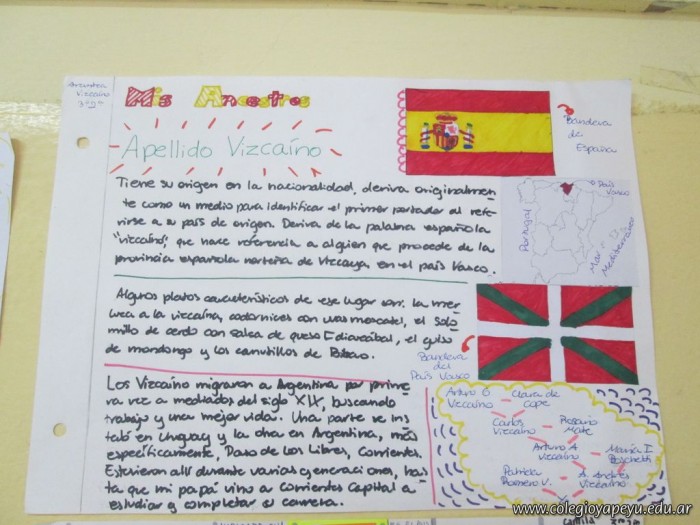 Vizcaíno
Mis Ancestros
Apellido Vizcaíno
Tiene su origen en la nacionalidad, deriva originalmen
te como un medio para identificar el primer portador al refe
rirse a su país de origen. Deriva de la palabra española
"vizcaíno", que hace referencia a alguien que procede de la
provincia española norteña de Vizcaya, en el país Vasco.
Algunos platos característicos de ese lugar son: la mer
luza a la vizcaína, codornices con uvas moscatel, el solo
millo de cerdo con salsa de queso Idiazábal, el guiso
de mondongo y los canutillos de Bilbao.
Los Vizcaíno migraron a Argentina por prime
ra vez a mediados del siglo XIX, buscando
trabajo y una mejor vida. Una parte se ins
taló en Uruguay y la otra en Argentina, más
específicamente, Paso de Los Libres, Corrientes.
Estuvieron allí durante varias generaciones, has
ta que mi papá vino a Corrientes Capital a
estudiar y completar su carrera.
Bandera
de
España
País
Vasco
Portugal
Mar
Mediterráneo
Bandera
del
País Vasco
Arturo G
Vizcaíno
Clara de
Cope
Carlos
Vizcaíno
Rosario
Arturo A
Vizcaíno
María I
Boschetti
Patricia
Romero V.
A. Andrés
Vizcaíno
www.colegioyapeyu.edu.ar